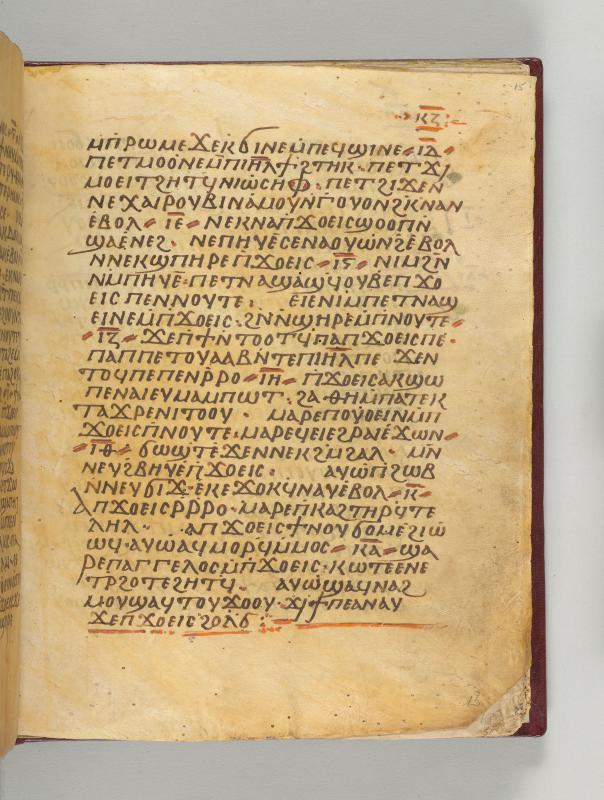 ⲕⲍ
ⲙⲡⲣⲱⲙⲉ ϫⲉⲕϭⲓⲛⲉ ⲙⲡⲉϥϣⲓⲛⲉ ⲓⲇ
ⲡⲉⲧⲙⲟⲟⲛⲉ ⲙⲡⲓⲏⲗ ϯϩⲧⲏⲕ · ⲡⲉⲧϫⲓ
ⲙⲟⲉⲓⲧ ϩⲏⲧϥ ⲛⲓⲱⲥⲏⲫ · ⲡⲉⲧϩⲓϫⲉⲛ
ⲛⲉⲭⲁⲓⲣⲟⲩⲃⲓⲛ ⲁⲙⲟⲩ ⲛⲅⲟⲩⲟⲛϩⲕ ⲛⲁⲛ
ⲉⲃⲟⲗ ⲓⲉ ⲛⲉⲕⲛⲁ ⲡϫⲟⲉⲓⲥ ϣⲟⲟⲡ ⲛ
ϣⲁⲉⲛⲉϩ · ⲛⲉⲡⲏⲩⲉ ⲥⲉⲛⲁⲟⲩⲱⲛϩ ⲉⲃⲟⲗ
ⲛⲛⲉⲕϣⲡⲏⲣⲉ ⲡϫⲟⲉⲓⲥ ⲓⲋ ⲛⲓⲙ ϩⲛ
ⲛⲙⲡⲏⲩⲉ · ⲡⲉⲧⲛⲁϣϣⲱϣ ⲟⲩⲃⲉ ⲡϫⲟ
ⲉⲓⲥ ⲡⲉⲛⲛⲟⲩⲧⲉ : ⲉⲓⲉ ⲛⲓⲙ ⲡⲉⲧⲛⲁϣ
ⲉⲓⲛⲉ ⲙⲡϫⲟⲉⲓⲥ · ϩⲛ ⲛϣⲏⲣⲉ ⲙⲡⲛⲟⲩⲧⲉ
ⲓⲍ ϫⲉ ⲡϯ ⲛⲧⲟⲟⲧϥ ⲡⲁⲡϫⲟⲉⲓⲥ ⲡⲉ ·
ⲡⲁⲡⲡⲉⲧⲟⲩⲁⲁⲃ ⲛⲧⲉ ⲡⲓⲏⲗ ⲡⲉ ϫⲉⲛ
ⲧⲟϥ ⲡⲉ ⲡⲉⲛⲣⲣⲟ ⲓⲏ ⲡϫⲟⲉⲓⲥ ⲁⲕϣⲱ
ⲡⲉ ⲛⲁⲓ ⲉⲩⲙⲁⲙⲡⲱⲧ · ϩⲁⲑⲏ ⲙⲡⲁⲧⲉⲕ
ⲧⲁϫⲣⲉ ⲛⲓⲧⲟⲟⲩ · ⲙⲁⲣⲉ ⲡⲟⲩⲟⲉⲓⲛ ⲙⲡ
ϫⲟⲉⲓⲥ ⲡⲛⲟⲩⲧⲉ · ⲙⲁⲣⲉϥⲉⲓ ⲉϩⲣⲁⲓ ⲉϫⲱⲛ
ⲓⲑ ϭⲱϣⲧ ⲉϫⲉⲛ ⲛⲉⲕϩⲙϩⲁⲗ · ⲙⲛ
ⲛⲉⲩϩⲃⲏⲩⲉ ⲡϫⲟⲉⲓⲥ · ⲁⲩⲱ ⲡϩⲱⲃ
ⲛⲛⲉⲩϭⲓϫ · ⲉⲕⲉϫⲟⲕϥ ⲛⲁⲩ ⲉⲃⲟⲗ ⲕ
ⲁⲡϫⲟⲉⲓⲥ ⲣⲣⲣⲟ · ⲙⲁⲣⲉ ⲡⲕⲁϩ ⲧⲏⲣϥ ⲧⲉ
ⲗⲏⲗ · ⲁⲡϫⲟⲉⲓⲥ ϯ ⲛⲟⲩϭⲟⲙ ϩⲓⲱ
ⲱϥ · ⲁⲩⲱ ⲁϥⲙⲟⲣϥ ⲙⲙⲟⲥ ⲕⲁ ϣⲁ
ⲣⲉ ⲡⲁⲅⲅⲉⲗⲟⲥ ⲙⲡϫⲟⲉⲓⲥ · ⲕⲱⲧⲉ ⲉⲛⲉ
ⲧⲣϩⲟⲧⲉ ϩⲏⲧϥ · ⲁⲩⲱ ϣⲁϥⲛⲁϩ
ⲙⲟⲩ ϣⲁϥⲧⲟⲩϫⲟⲟⲩ · ϫⲓϯⲡⲉ ⲁⲛⲁⲩ
ϫⲉ ⲡϫⲟⲉⲓⲥ ϩⲟⲗϭ :